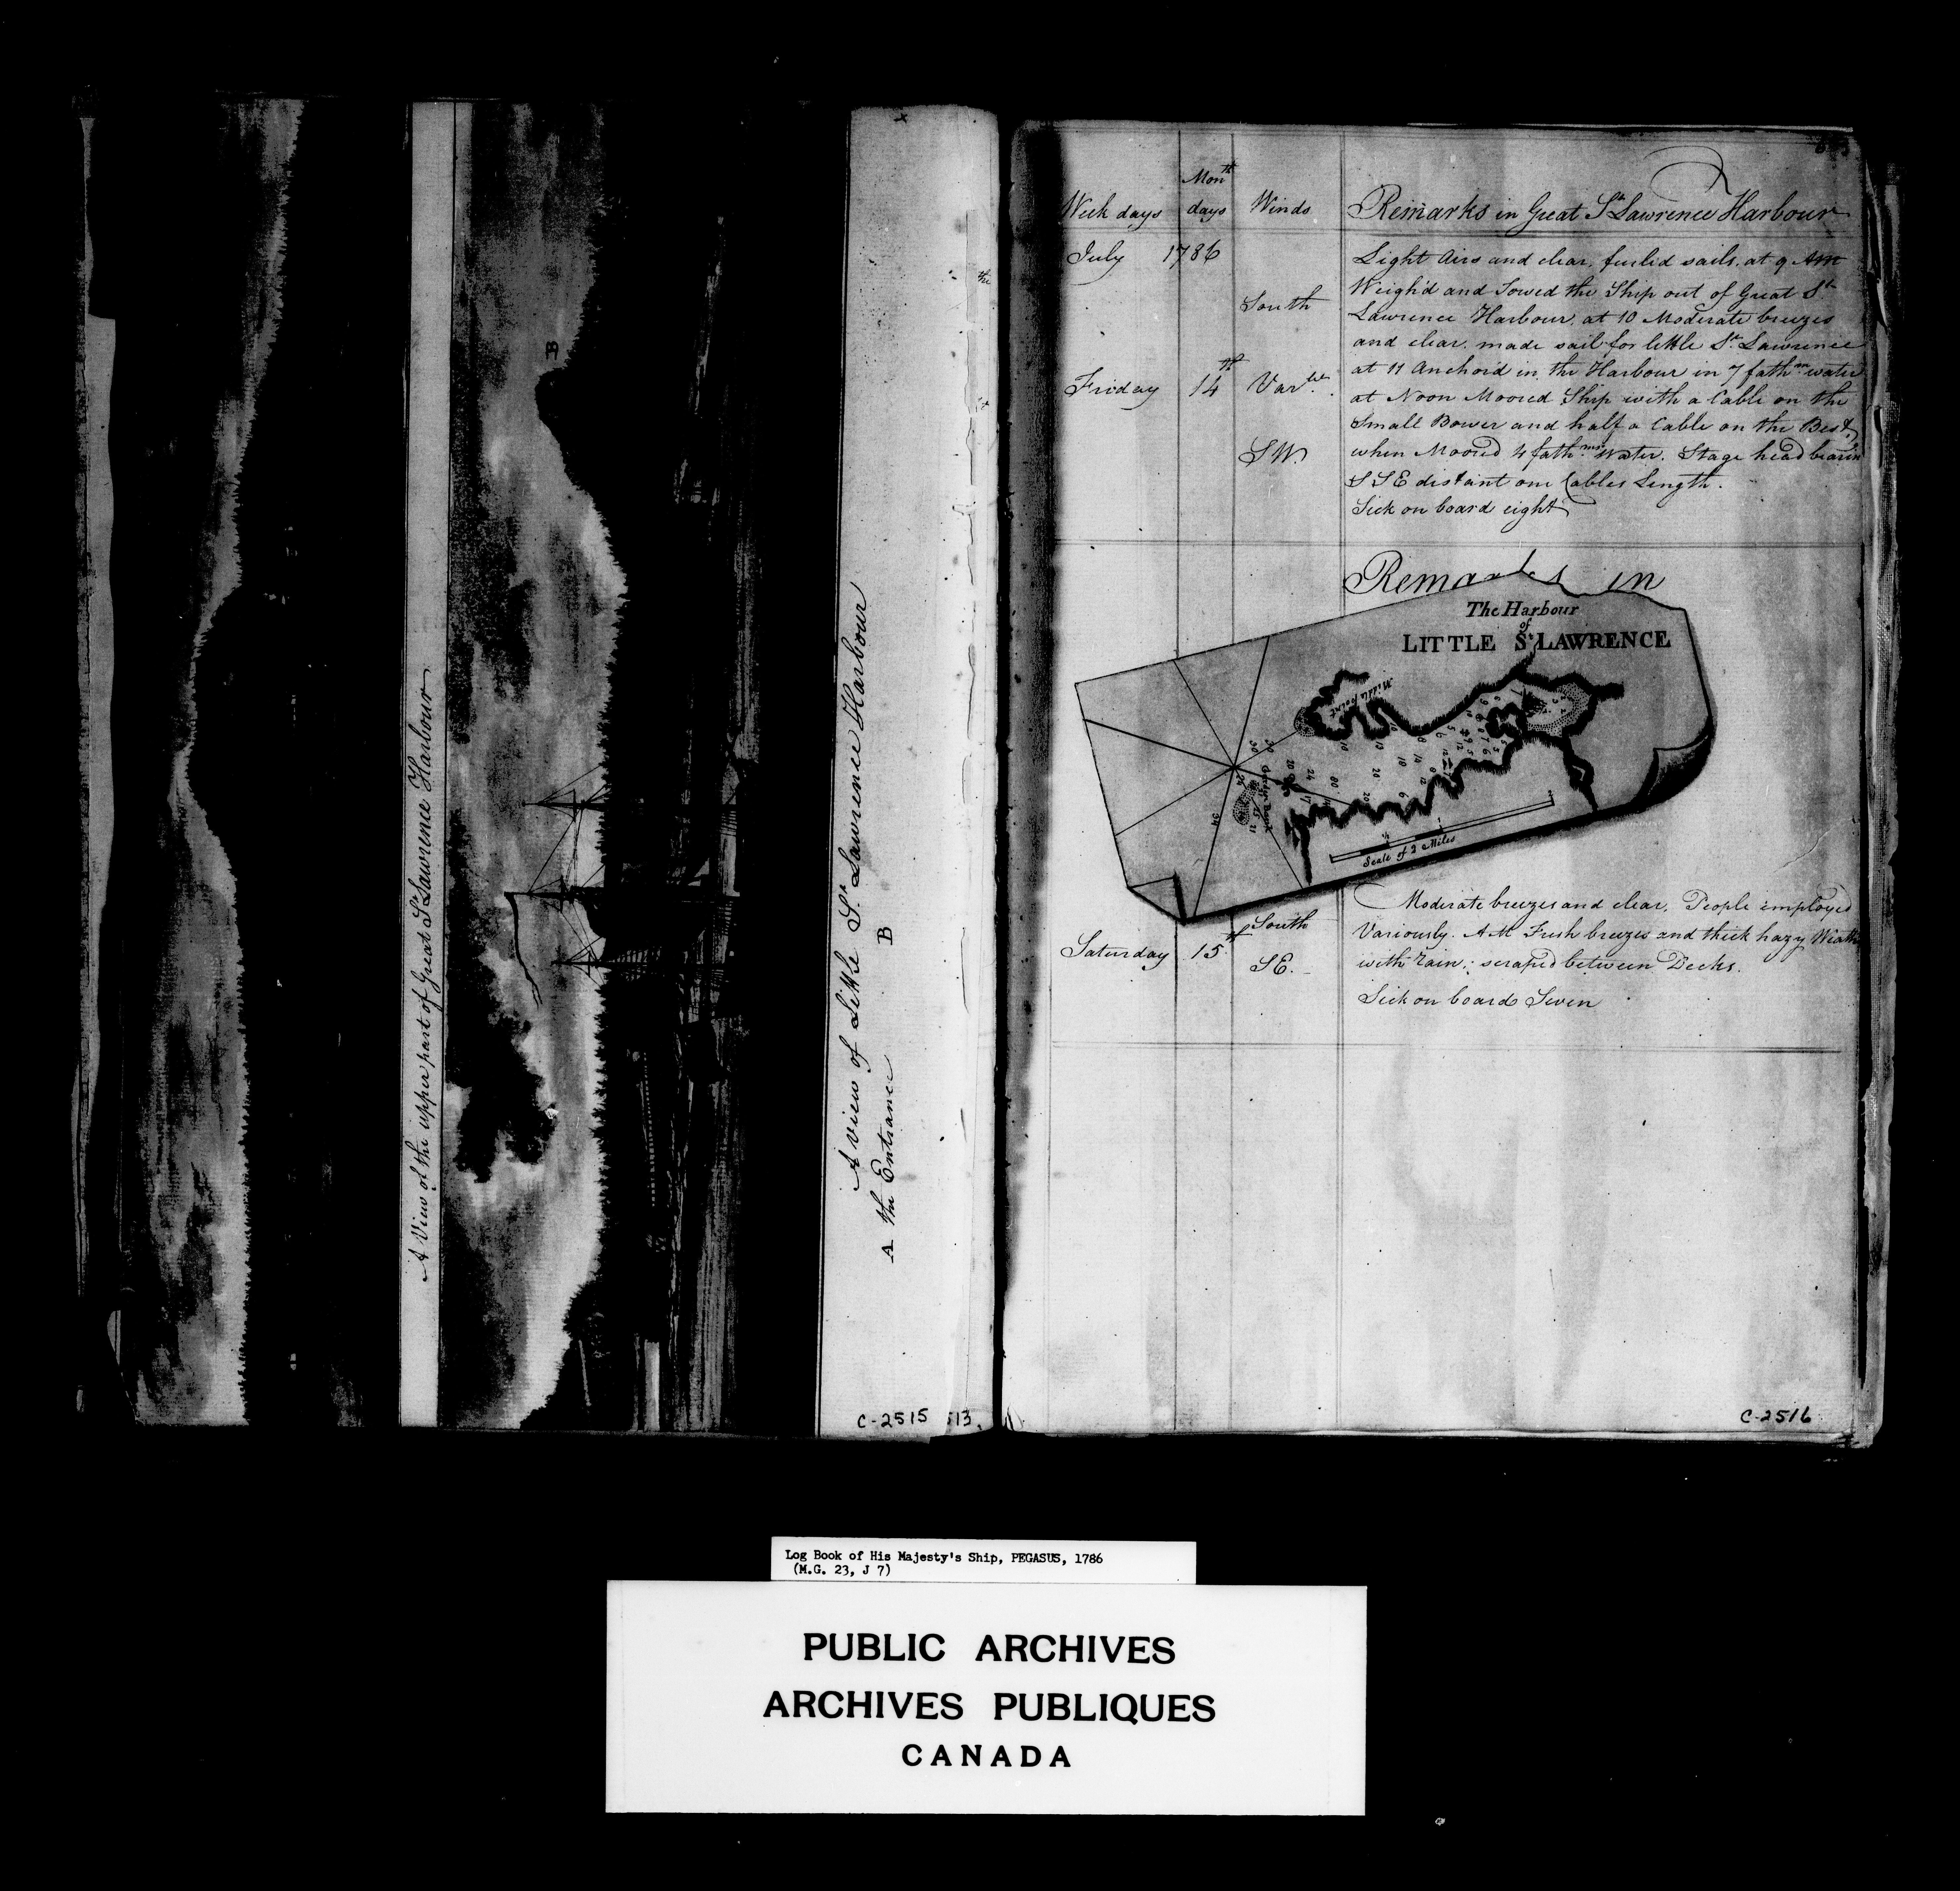 A View of the upper part of Great St Lawrence Harbour
B
A view of Little St. Lawrence Harbour
A the Entrance B
C-2515 513
Week days Month days Winds Remarks in Great St Lawrence Harbour
July 1786
Light Airs and clear, furled sails, at 9 AM
Weigh'd and Towed the Ship out of Great St
South
Lawrence Harbour, at 10 Moderate breezes
and clear, made sail for little St Lawrence
at 11 Anchord in the Harbour in 7 fathm water
Friday 14th Varble
at Noon Moored Ship with a Cable on the
Small Bower and half a Cable on the Best,
SW.
when Moored 4 fathms water. Stage head bearing
SSE distant one Cables Length.
Sick on board eight
Remarks in
The Harbour
of
LITTLE St LAWRENCE
Middle Point
Garden Bank
Scale of 2 Miles
South
Moderate breezes and clear, People employed
Variously. AM Fresh breezes and thick hazy Weath
Saturday 15th SE.
with rain; scraped between Decks.
Sick on board Seven
C-2516
Log Book of His Majesty's Ship, PEGASUS, 1786
(M.G. 23, J 7)
PUBLIC ARCHIVES
ARCHIVES PUBLIQUES
CANADA